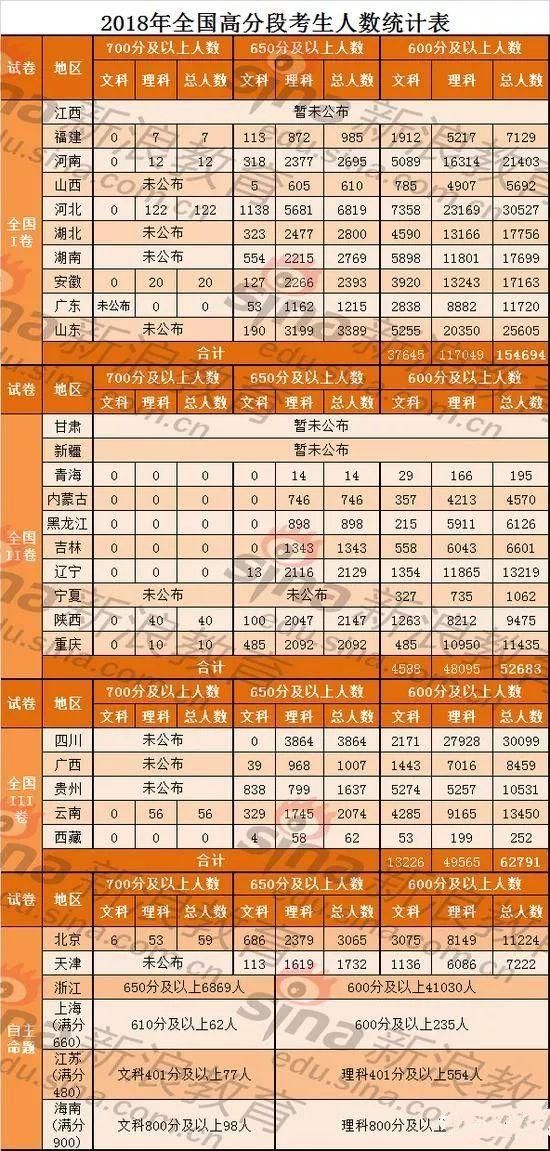 2018年全国高分段考生人数统计表
试卷 地区 700分及以上人数 650分及以上人数 600分及以上人数
文科 理科 总人数 文科 理科 总人数 文科 理科 总人数
全国I卷
江西 暂未公布
福建 0 7 7 113 872 985 1912 5217 7129
河南 0 12 12 318 2377 2695 5089 16314 21403
山西 未公布 5 605 610 785 4907 5692
河北 0 122 122 1138 5681 6819 7358 23169 30527
湖北 未公布 323 2477 2800 4590 13166 17756
湖南 未公布 554 2215 2769 5898 11801 17699
安徽 0 20 20 127 2266 2393 3920 13243 17163
广东 未公布 0 0 53 1162 1215 2838 8882 11720
山东 未公布 190 3199 3389 5255 20350 25605
合计 37645 117049 154694
试卷 地区 700分及以上人数 650分及以上人数 600分及以上人数
文科 理科 总人数 文科 理科 总人数 文科 理科 总人数
全国II卷
甘肃 暂未公布
新疆 暂未公布
青海 0 0 0 0 14 14 29 166 195
内蒙古 0 0 0 0 746 746 357 4213 4570
黑龙江 0 0 0 0 898 898 215 5911 6126
吉林 0 0 0 0 1343 1343 558 6043 6601
辽宁 0 0 0 13 2116 2129 1354 11865 13219
宁夏 未公布 未公布 327 735 1062
陕西 0 40 40 100 2047 2147 1263 8212 9475
重庆 0 10 10 485 2092 2092 485 10950 11435
合计 4588 48095 52683
试卷 地区 700分及以上人数 650分及以上人数 600分及以上人数
文科 理科 总人数 文科 理科 总人数 文科 理科 总人数
全国III卷
四川 未公布 0 3864 3864 2171 27928 30099
广西 未公布 39 968 1007 1443 7016 8459
贵州 未公布 838 799 1637 5274 5257 10531
云南 0 56 56 329 1745 2074 4285 9165 13450
西藏 0 0 0 4 58 62 53 199 252
合计 13226 49565 62791
试卷 地区 700分及以上人数 650分及以上人数 600分及以上人数
文科 理科 总人数 文科 理科 总人数 文科 理科 总人数
自主命题
北京 6 53 59 686 2379 3065 3075 8149 11224
天津 未公布 113 1619 1732 1136 6086 7222
浙江 650分及以上6869人 600分及以上41030人
上海(满分660) 610分及以上62人 600分及以上235人
江苏(满分480) 文科401分及以上77人 理科401分及以上554人
海南(满分900) 文科800分及以上98人 理科800分及以上
sina新浪教育
edu.sina.com.cn